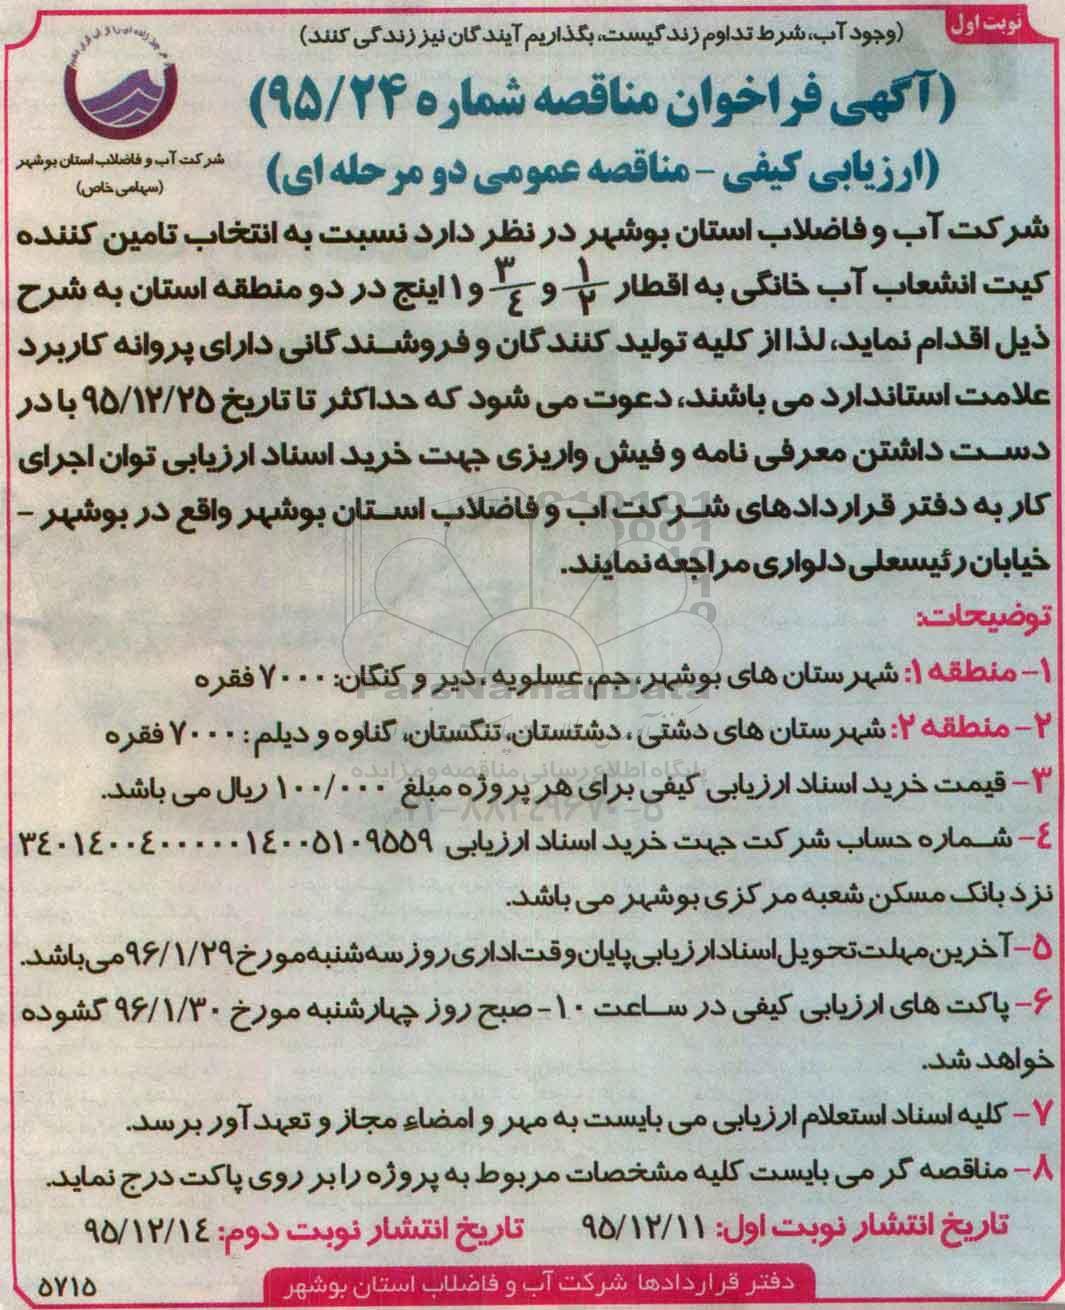 نوبت اول
(وجود آب، شرط تداوم زندگیست، بگذاریم آیندگان نیز زندگی کنند)
(آگهی فراخوان مناقصه شماره ۹۵/۲۴)
(ارزیابی کیفی - مناقصه عمومی دو مرحله ای)
شرکت آب و فاضلاب استان بوشهر
(سهامی خاص)
شرکت آب و فاضلاب استان بوشهر در نظر دارد نسبت به انتخاب تامین کننده
کیت انشعاب آب خانگی به اقطار ۱/۲ و ۳/۴ و ۱ اینچ در دو منطقه استان به شرح
ذیل اقدام نماید، لذا از کلیه تولید کنندگان و فروشندگانی دارای پروانه کاربرد
علامت استاندارد می باشند، دعوت می شود که حداکثر تا تاریخ ۹۵/۱۲/۲۵ با در
دست داشتن معرفی نامه و فیش واریزی جهت خرید اسناد ارزیابی توان اجرای
کار به دفتر قراردادهای شرکت اب و فاضلاب استان بوشهر واقع در بوشهر -
خیابان رئیسعلی دلواری مراجعه نمایند.
توضیحات:
۱- منطقه ۱: شهرستان های بوشهر، جم، عسلویه، دیر و کنگان: ۷۰۰۰ فقره
۲- منطقه ۲: شهرستان های دشتی، دشتستان، تنگستان، گناوه و دیلم: ۷۰۰۰ فقره
پایگاه اطلاع رسانی مناقصه و مزایده
۳- قیمت خرید اسناد ارزیابی کیفی برای هر پروژه مبلغ ۱۰۰/۰۰۰ ریال می باشد.
۴- شماره حساب شرکت جهت خرید اسناد ارزیابی ۳۴۰۱۴۰۰۴۰۰۰۰۰۱۴۰۰۵۱۰۹۵۵۹
نزد بانک مسکن شعبه مرکزی بوشهر می باشد.
۵- آخرین مهلت تحویل اسناد ارزیابی پایان وقت اداری روز سه شنبه مورخ ۹۶/۱/۲۹ می باشد.
۶- پاکت های ارزیابی کیفی در ساعت ۱۰- صبح روز چهارشنبه مورخ ۹۶/۱/۳۰ گشوده
خواهد شد.
۷- کلیه اسناد استعلام ارزیابی می بایست به مهر و امضاء مجاز و تعهد آور برسد.
۸- مناقصه گر می بایست کلیه مشخصات مربوط به پروژه را بر روی پاکت درج نماید.
تاریخ انتشار نوبت اول: ۹۵/۱۲/۱۱ تاریخ انتشار نوبت دوم: ۹۵/۱۲/۱۴
دفتر قراردادها شرکت آب و فاضلاب استان بوشهر
۵۷۱۵